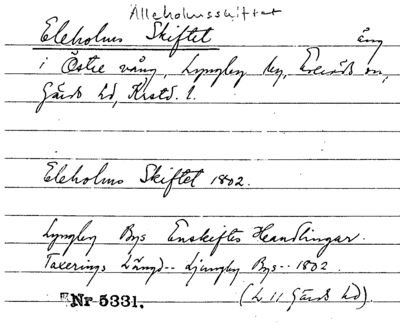 Älleholmsskiftet
Eleholms Skiftet äng
i Östre vång, Lyngby by, Everöds sn,
Gärds hd, Krstd. l.
Eleholms Skiftet 1802.
Lyngby Bys Enskiftes Heandlingar.
Taxerings Längd-- Ljungby Bys-- 1802.
Nr 5331. (L 11 Gärds hd)